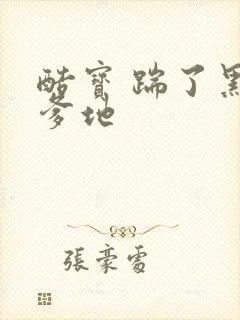 酷寶踹了黑
爹地
張豪雲